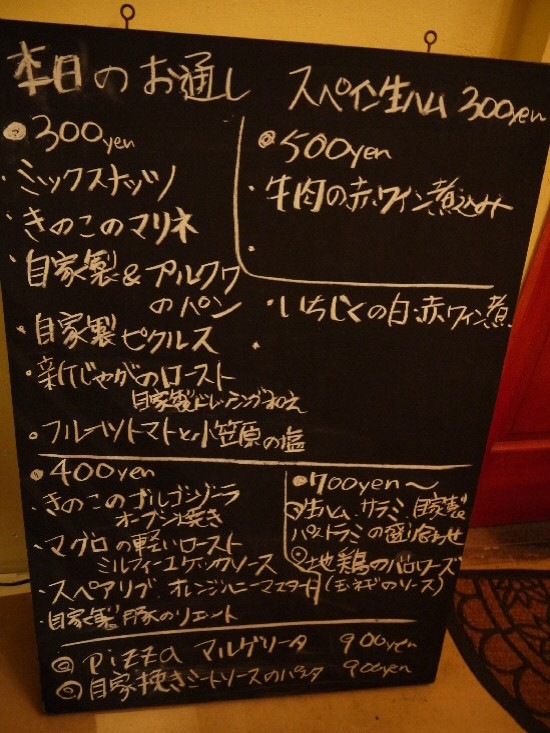 本日のお通し
スペイン生ハム 300yen
300yen
・ミックスナッツ
・きのこのマリネ
・自家製&アルクワ
のパン
・自家製ピクルス
・新じゃがのロースト
自家製ドレッシング和え
・フルーツトマトと小笠原の塩
500yen
・牛肉の赤ワイン煮込み
・
・いちじくの白・赤ワイン煮
・
400yen
・きのこのゴルゴンゾーラ
オーブン焼き
・マグロの軽いロースト
ミルフィーユ ソース
・スペアリブ オレンジハニーマスタード
・自家製豚のリエット
700yen〜
生ハム、サラミ、自家製
パストラミの盛り合わせ
地鶏のバロワーズ
(玉ネギのソース)
pizza マルゲリータ 900yen
自家挽きミートソースのパスタ 900yen